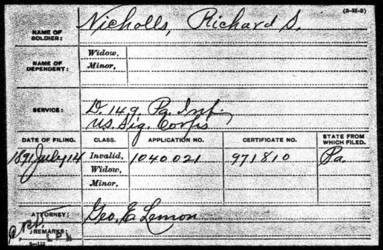 (3-35-2)
NAME OF SOLDIER: Nicholls, Richard S.
NAME OF DEPENDENT: Widow,
Minor,
SERVICE: D. 149 Pa. Inf.
U.S. Sig. Corps
DATE OF FILING. CLASS. APPLICATION NO. CERTIFICATE NO. STATE FROM WHICH FILED.
1891 July 14 Invalid, 1040021 971810 Pa.
Widow,
Minor,
ATTORNEY: Geo. E. Lemon
REMARKS: